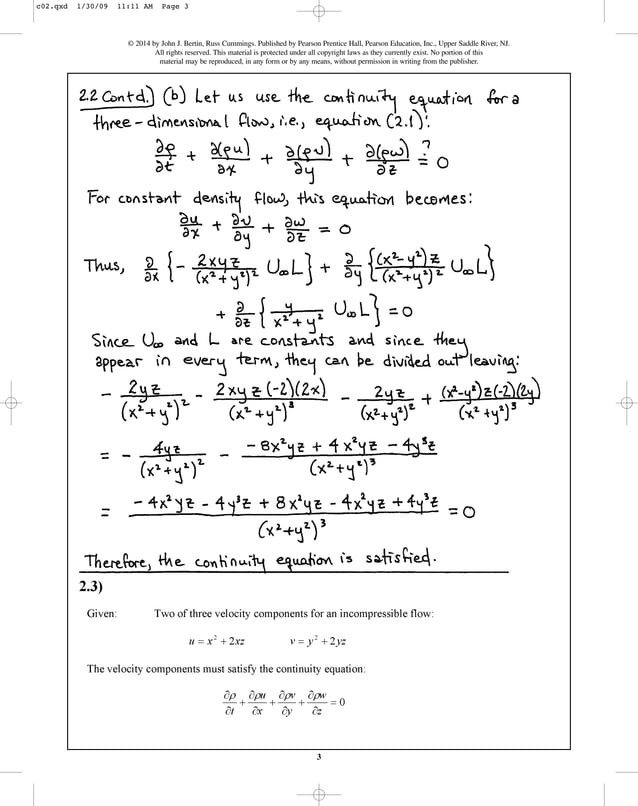 c02.qxd 1/30/09 11:11 AM Page 3
© 2014 by John J. Bertin, Russ Cummings. Published by Pearson Prentice Hall, Pearson Education, Inc., Upper Saddle River, NJ.
All rights reserved. This material is protected under all copyright laws as they currently exist. No portion of this
material may be reproduced, in any form or by any means, without permission in writing from the publisher.
2.2 Contd.) (b) Let us use the continuity equation for a
three-dimensional flow, i.e., equation (2.1):
∂ρ/∂t + ∂(ρu)/∂x + ∂(ρv)/∂y + ∂(ρw)/∂z =? 0
For constant density flow, this equation becomes:
∂u/∂x + ∂v/∂y + ∂w/∂z = 0
Thus, ∂/∂x {- 2xyz/(x²+y²)² U∞L} + ∂/∂y {(x²-y²)z/(x²+y²)² U∞L}
+ ∂/∂z {y/(x²+y²) U∞L} = 0
Since U∞ and L are constants and since they
appear in every term, they can be divided out leaving:
- 2yz/(x²+y²)² - 2xyz(-2)(2x)/(x²+y²)³ - 2yz/(x²+y²)² + (x²-y²)z(-2)(2y)/(x²+y²)³
= - 4yz/(x²+y²)² - (-8x²yz + 4x²yz - 4y³z)/(x²+y²)³
= (-4x²yz - 4y³z + 8x²yz - 4x²yz + 4y³z)/(x²+y²)³ = 0
Therefore, the continuity equation is satisfied.
2.3)
Given: Two of three velocity components for an incompressible flow:
u = x² + 2xz v = y² + 2yz
The velocity components must satisfy the continuity equation:
∂ρ/∂t + ∂ρu/∂x + ∂ρv/∂y + ∂ρw/∂z = 0
3